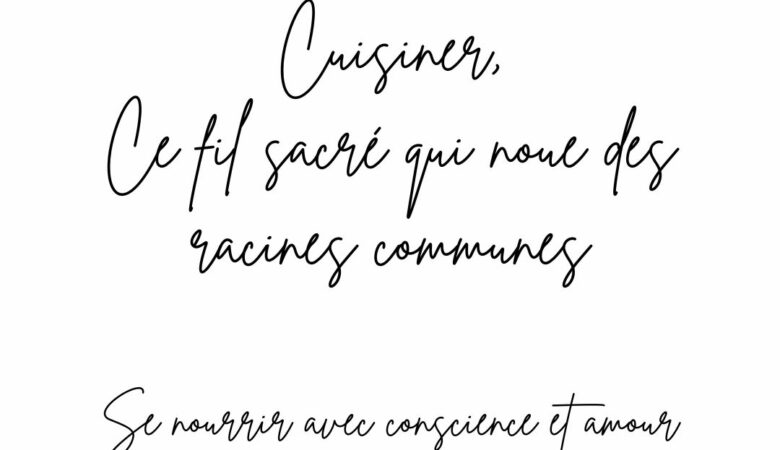 Cuisiner,
Ce fil sacré qui noue des
racines communes
Se nourrir avec conscience et amour